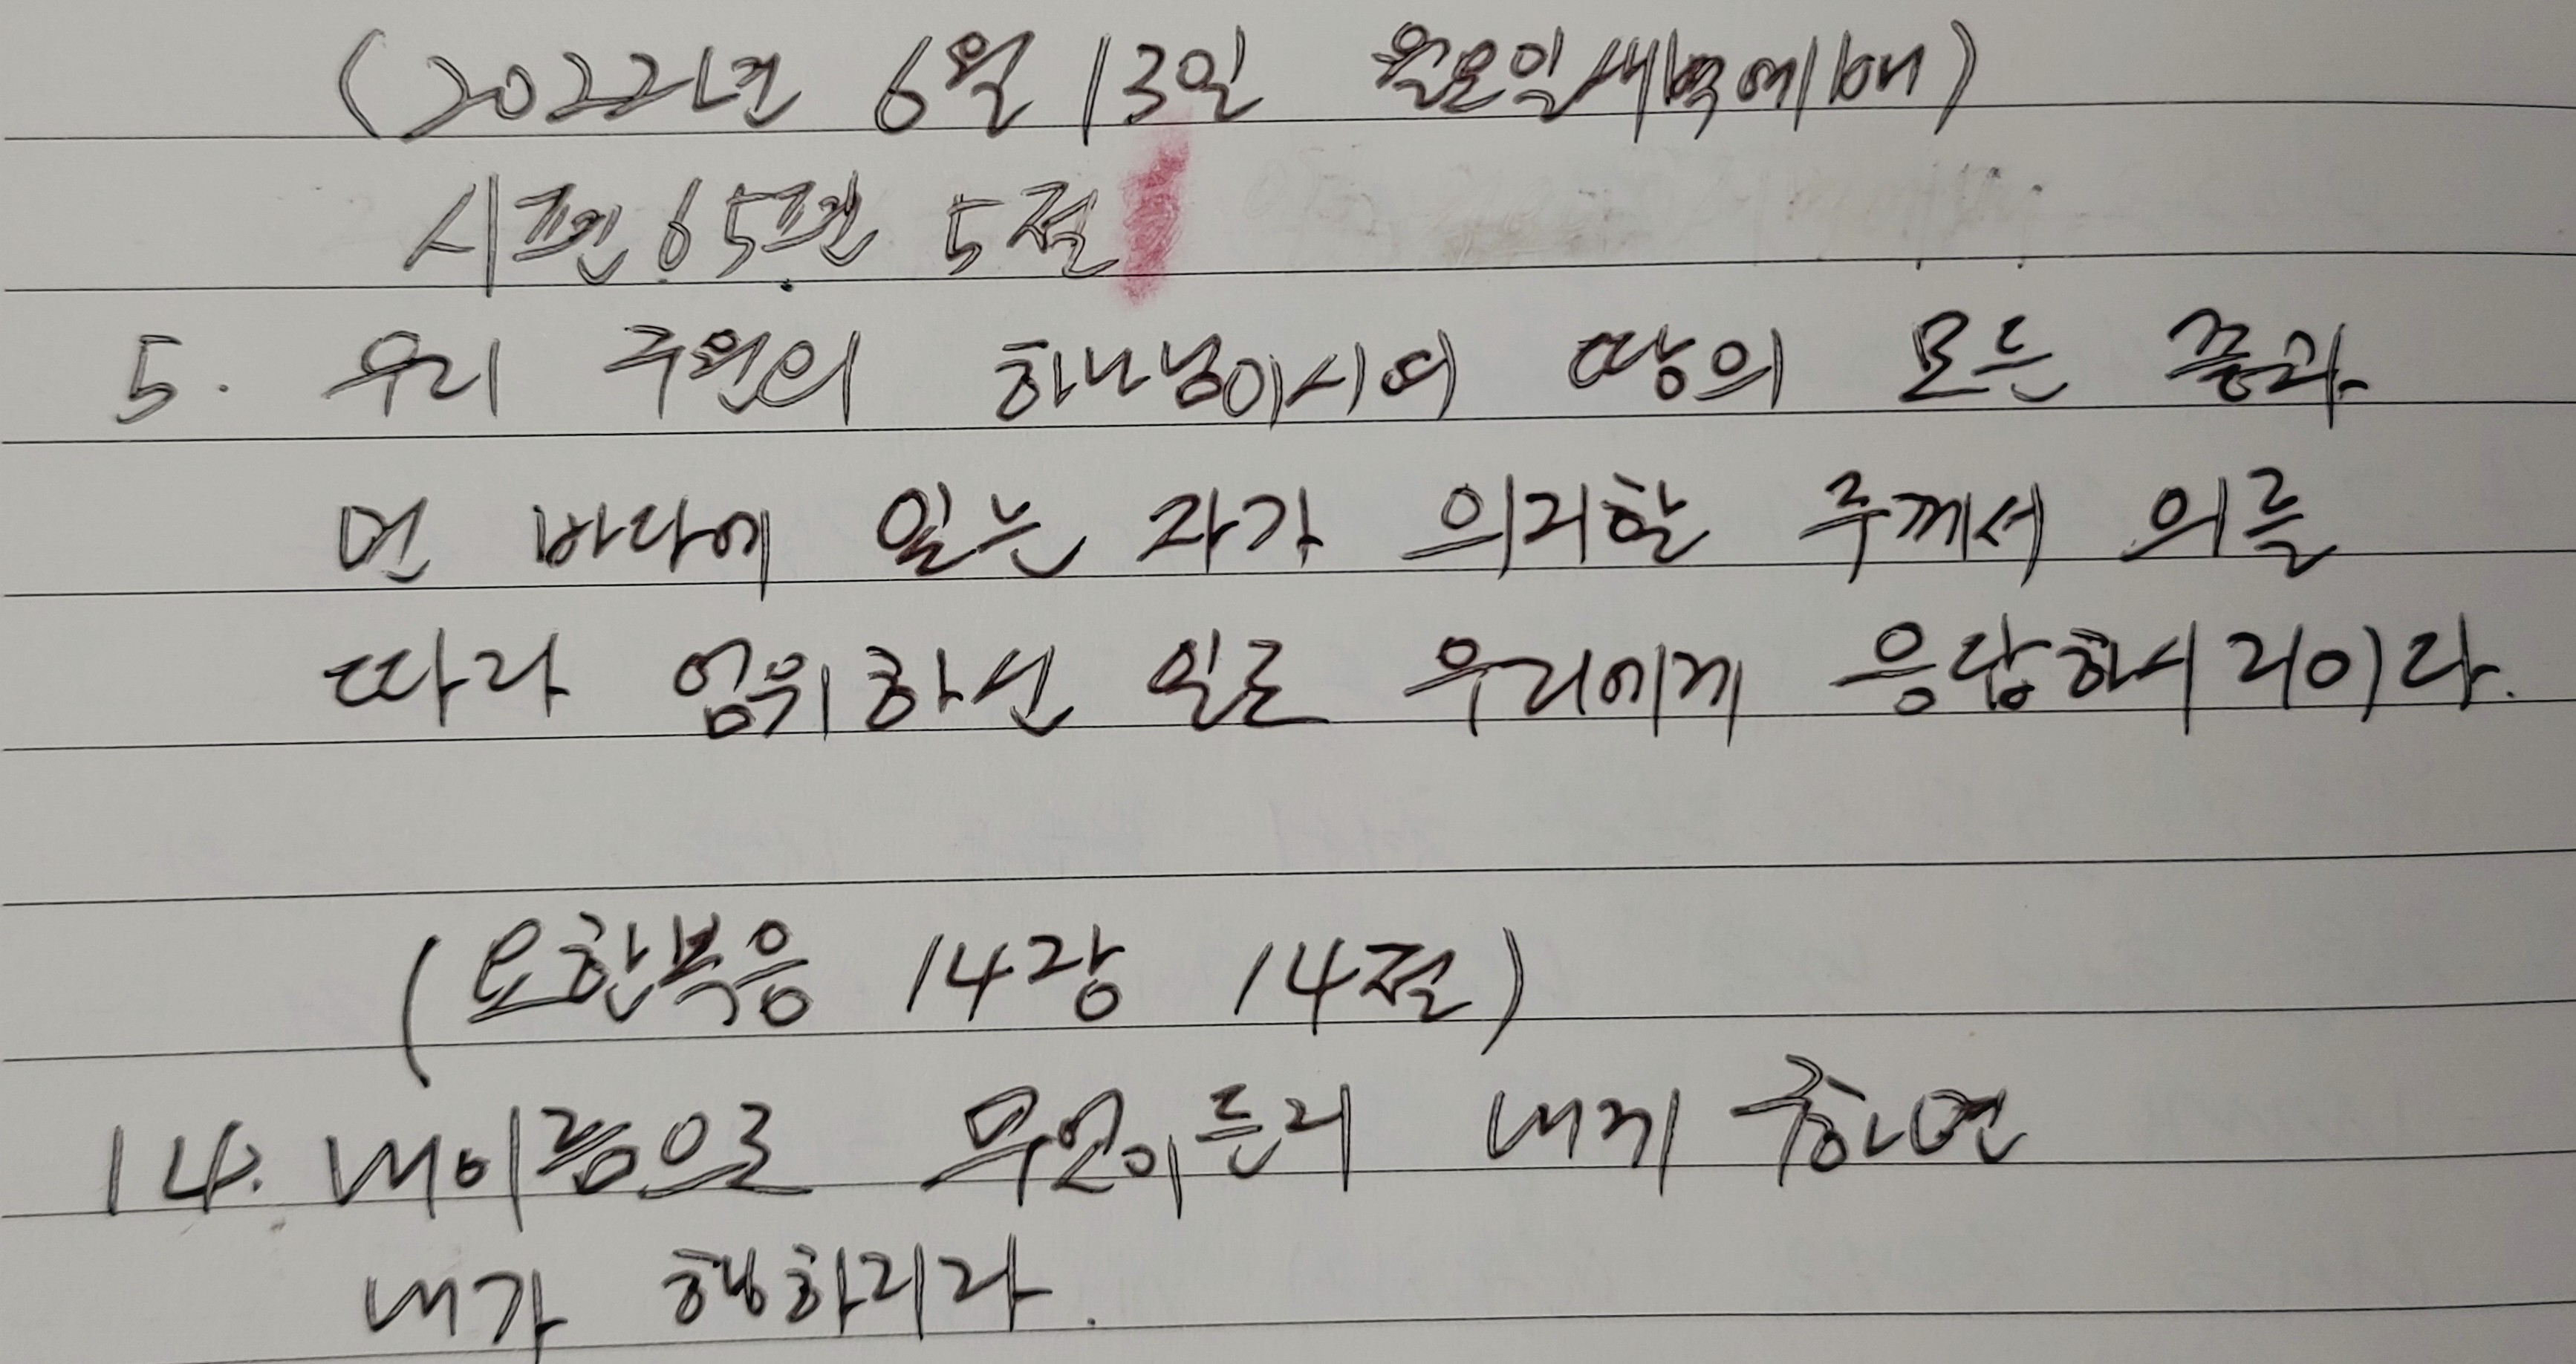 (2022년 6월 13일 월요일새벽예배)
시편65편 5절
5. 우리 구원의 하나님이시여 땅의 모든 끝과
먼 바다에 있는 자가 의지할 주께서 의를
따라 엄위하신 일로 우리에게 응답하시리이다.
(요한복음 14장 14절)
14. 내이름으로 무엇이든지 내게 구하면
내가 행하리라.